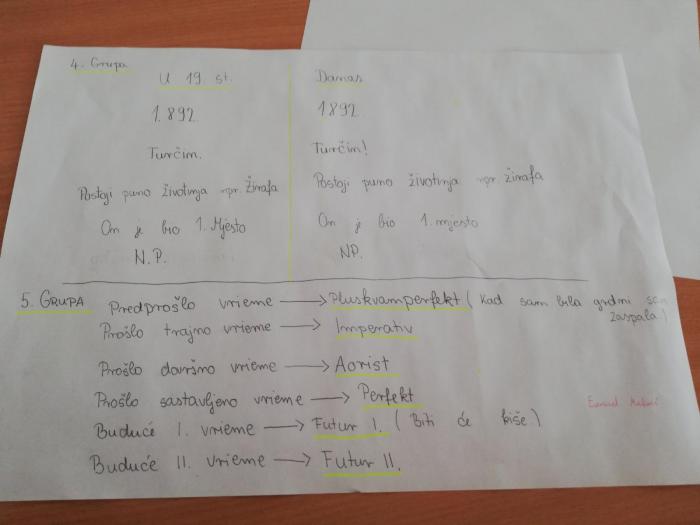 4. Grupa
U 19. st. Danas
1.892. 1892.
Turčim. Turčim!
Postoji puno životinja npr. Žirafa Postoji puno životinja npr. žirafa
On je bio 1. Mjesto On je bio 1. mjesto
N.P. NP.
5. GRUPA Predprošlo vrieme → Pluskvamperfekt (Kad sam bila grdmi sam
zaspala)
Prošlo trajno vrieme → Imperativ
Prošlo dovršno vrieme → Aorist
Prošlo sastavljeno vrieme → Perfekt
Buduće I. vrieme → Futur I. (Biti će kiše)
Buduće II. vrieme → Futur II.